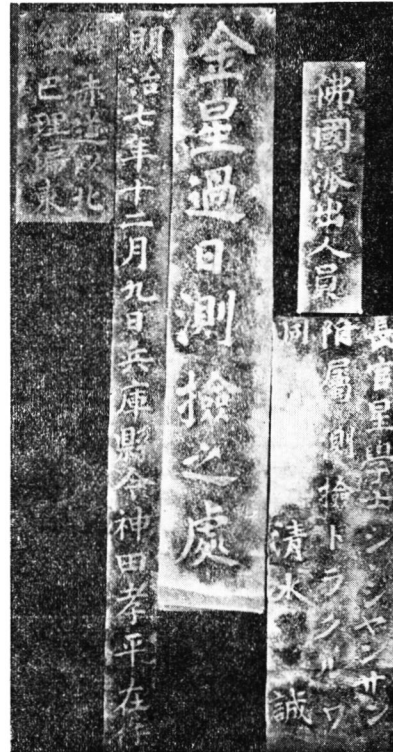 佛國派出人員
長官星學士シヤンサン
附屬測撿トラクルワ
同 清水 誠
金星過日測撿之處
明治七年十二月九日兵庫縣令神田孝平在
緯赤道以北
經巴理偏東